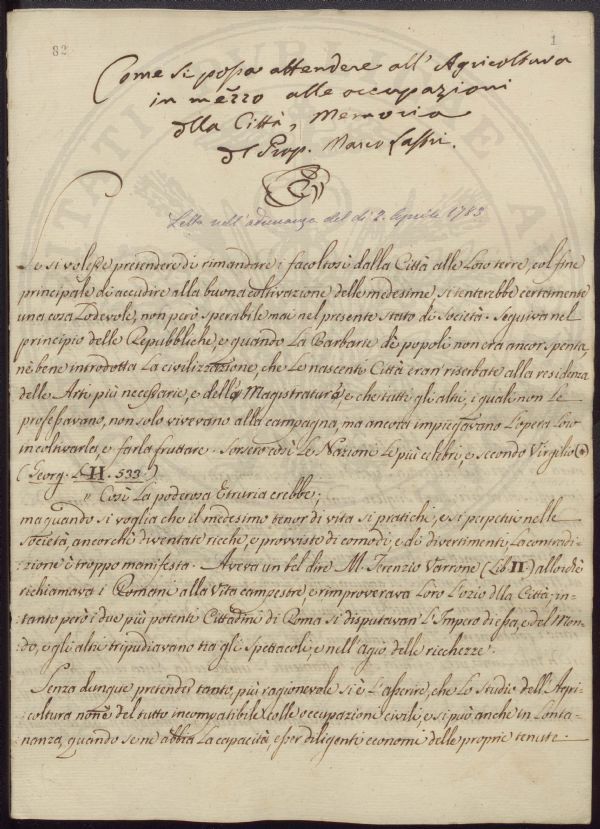 82
1
Come si possa attendere all' Agricoltura
in mezzo alle occupazioni
dlla Città, Memoria
del Prop. Marco Lastri.
Letta nell'adunanza del di 2. Aprile 1783
Se si volesse pretendere di rimandare i facoltosi dalla Città alle Loro terre, col fine
principale di accudire alla buona coltivazione delle medesime, si tenterebbe certamente
una cosa Lodevole, non però sperabile mai nel presente Stato di Società. Seguiva nel
principio delle Repubbliche, e quando La Barbarie de' popoli non era ancor spenta,
nè bene introdotta La civilizzazione, che Le nascenti Città eran riserbate alla residenza
delle Arti più necessarie, e della Magistratura, e che tutti gli altri, i quali non Le
professavano, non solo vivevano alla campagna, ma ancora impiegavano L'opera Loro
in coltivarla, e farla fruttare. Sorsero così Le Nazioni Le più celebri, e secondo Virgilio (*)
(Georg. L. II. 533.)
" Così La poderosa Etruria crebbe;
ma quando si voglia che il medesimo tenor di vita si pratichi, e si perpetui nelle
Società, ancorchè diventate ricche, e provviste di comodi, e di divertimenti, La contradi-
zione è troppo manifesta. Aveva un bel dire M. Terenzio Varrone (Lib. II.) allorchè
richiamava i Romani alla Vita campestre, e rimproverava Loro L'ozio dlla Città; in-
tanto però i due più potenti Cittadini di Roma si disputavan L'Impero di essa, e del Mon-
do, e gli altri tripudiavano tra gli Spettacoli, e nell'agio delle ricchezze.
Senza dunque pretender tanto, più ragionevole si è L'asserire, che Lo Studio dell'Agri-
coltura non è del tutto incompatibile colle occupazioni civili, e si può, anche in Lonta-
nanza, quando se ne abbia La capacità, esser diligenti economi delle proprie tenute.